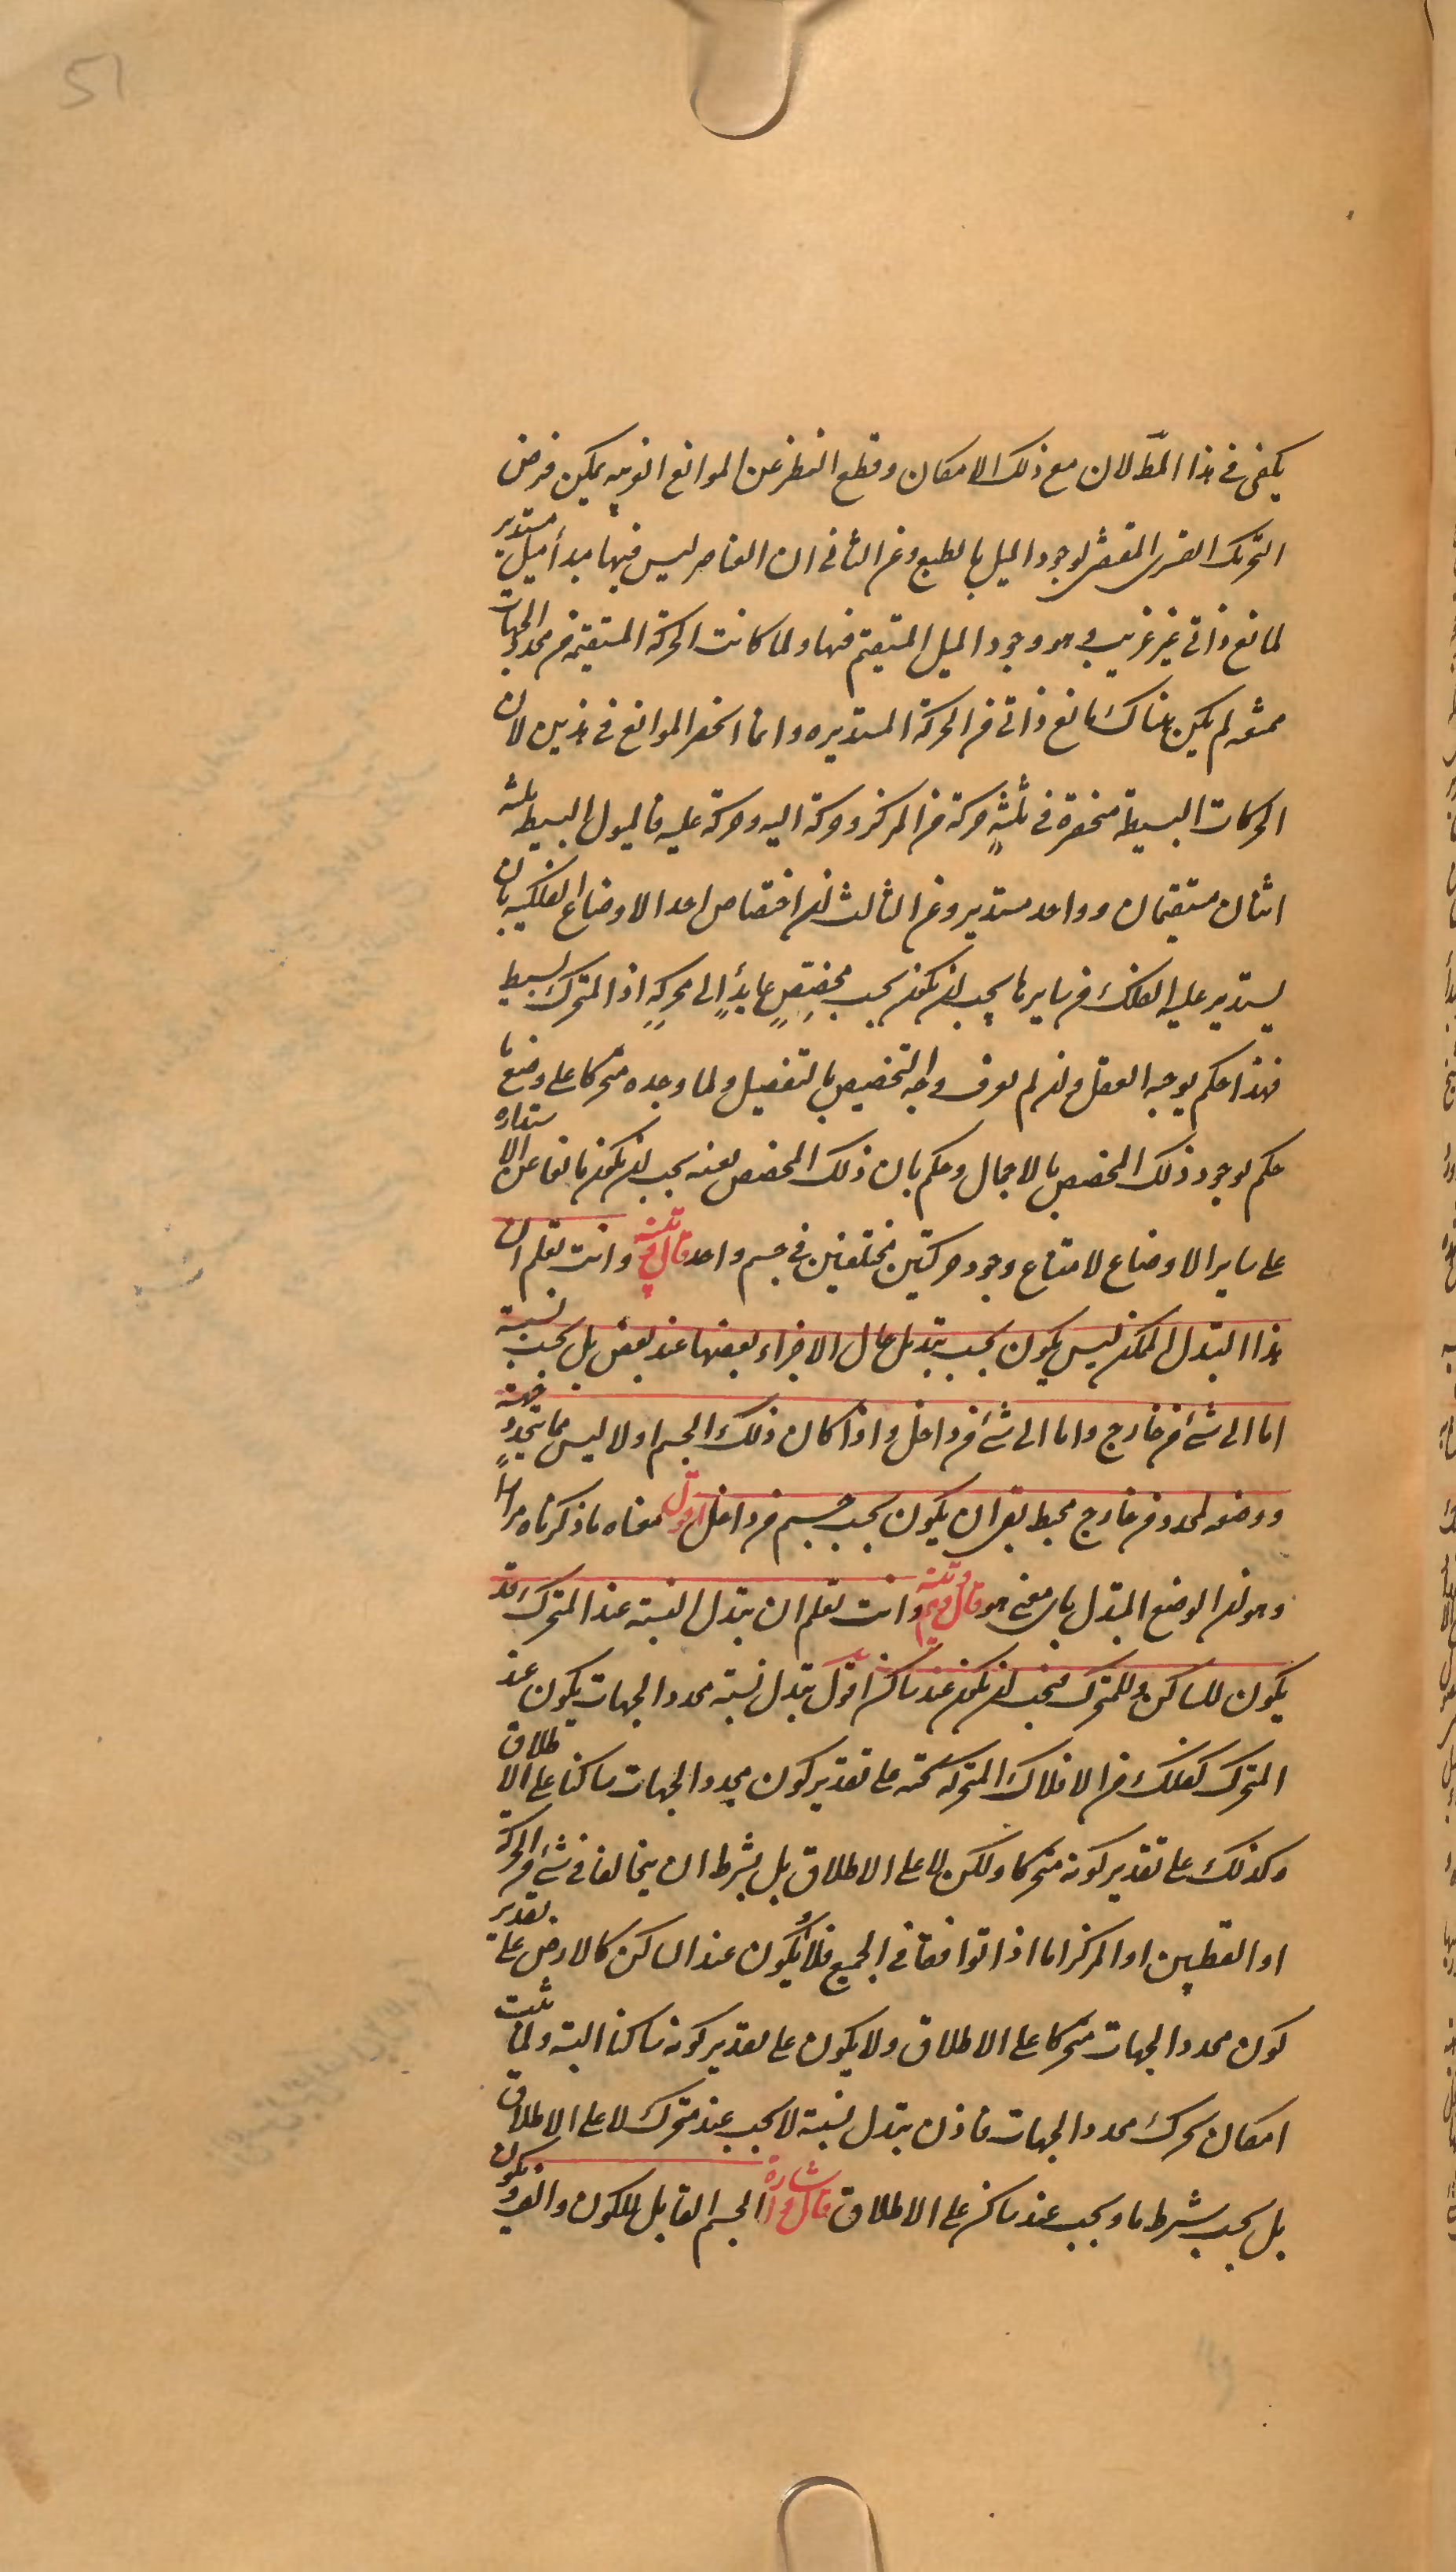 51
يكفى فى هذا المط لان مع ذلك الامكان وقطع النظر عن الموانع الغريبه يمكن فرض
التحريك القسرى المقتضى لوجود الميل بالطبع وعن الثانى ان العناصر ليس فيها مبدأ ميل مستدير
لمانع ذاتى غير غريب وهو وجود الميل المستقيم فيها ولما كانت الحركة المستقيمة من محدد الجهات
ممتنعه لم يكن هناك مانع ذاتى من الحركة المستديره وانما انحصر الموانع فى هذين لان
الحركات البسيطة منحصرة فى ثلثةٍ حركة من المركز وحركة اليه وحركة عليه فالميول البسيط ثلثه
اثنان مستقيمان وواحد مستدير وعن الثالث ان اختصاص احد الاوضاع الفلكيه بان
يستدير عليه الفلك من سايرها يجب ان يكون بحسب مخصّصٍ عايدٍ الى محركهِ اذ المتحرك بسيط
فهذا حكم يوجبه العقل وان لم يعرف وجه التخصيص بالتفصيل ولما وجده متحركا على وضع ما
حكم بوجود ذلك المخصص بالاجمال وحكم بان ذلك المخصص بعينه يجب ان يكون مانعا عن الاستداره
على ساير الاوضاع لامتناع وجود حركتين مختلفتين فى جسم واحد قال تنبيه وانت تعلم ان
هذا التبدل الممكن ليس يكون بحسب تبدل حال الاجزاء بعضها عند بعض بل بحسب نسبة
اما الى شئ من خارج واما الى شئ من داخل واذا كان ذلك الجسم اولا ليس مما يتحدد جهته
ووضعه لمحدد من خارج محيط بقى ان يكون بحسب جسم من داخل اقول معناه ما ذكرناه مرارا
وهو ان الوضع المتبدل باى معنى هو قال وهم وتنبيه وانت تعلم ان تبدل النسبة عند المتحرك قد
يكون للساكن وللمتحرك فيجب ان يكون عند ساكن اقول تبدل نسبة محدد الجهات يكون عند
المتحرك كفلك من الافلاك المتحركة تحته على تقدير كون محدد الجهات ساكنا على الاطلاق
وكذلك على تقدير كونه متحركا ولكن لا على الاطلاق بل بشرط ان يتخالفا فى شئ من الحركة
او القطبين او المركز اما اذا توافقا فى الجميع فلا ويكون عند الساكن كالارض على تقدير
كون محدد الجهات متحركا على الاطلاق ولا يكون على تقدير كونه ساكنا البته ولما ثبت
امكان تحرك محدد الجهات فاذن تبدل نسبة لا يجب عند متحرك لا على الاطلاق
بل يجب بشرط ما ويجب عند ساكن على الاطلاق قال اشارة الجسم القابل للكون والفساد يكون